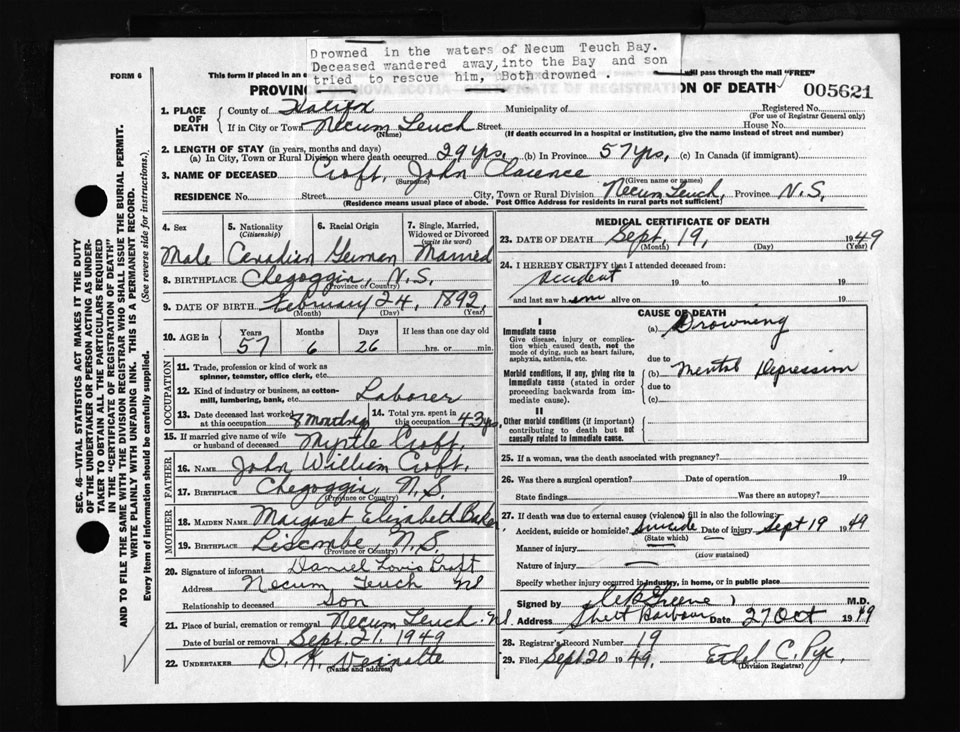 Drowned in the waters of Necum Teuch Bay.
Deceased wandered away, into the Bay and son
tried to rescue him, Both drowned .
FORM 6
This form if placed in an e
will pass through the mail "FREE"
PROVINCE OF NOVA SCOTIA CERTIFICATE OF REGISTRATION OF DEATH
005621
1. PLACE OF DEATH
County of Halifax Municipality of Registered No.
(For use of Registrar General only)
If in City or Town Necum Teuch Street House No.
(Name) (If death occurred in a hospital or institution, give the name instead of street and number)
2. LENGTH OF STAY (in years, months and days)
(a) In City, Town or Rural Division where death occurred 29 yrs. (b) In Province 57 yrs. (c) In Canada (if immigrant)
3. NAME OF DECEASED Croft, John Clarence
(Surname) (Given name or names)
RESIDENCE No. Street City, Town or Rural Division Necum Teuch, Province N.S.
(Residence means usual place of abode. Post Office Address for residents in rural parts not sufficient)
4. Sex 5. Nationality 6. Racial Origin 7. Single, Married,
(Citizenship) Widowed or Divorced
(write the word)
Male Canadian German Married
8. BIRTHPLACE Chegoggin, N.S.
(Province or Country)
9. DATE OF BIRTH February 24, 1892
(Month) (Day) (Year)
10. AGE in Years Months Days If less than one day old
57 6 26 hrs. or min.
OCCUPATION
11. Trade, profession or kind of work as
spinner, teamster, office clerk, etc.
12. Kind of industry or business, as cotton-
mill, lumbering, bank, etc. Laborer
13. Date deceased last worked at this occupation 8 months 14. Total yrs. spent in this occupation 43 yrs.
15. If married give name of wife
or husband of deceased Myrtle Croft.
FATHER
16. NAME John William Croft.
17. BIRTHPLACE Chegoggin, N.S.
(Province or Country)
MOTHER
18. MAIDEN NAME Margaret Elizabeth Baker
19. BIRTHPLACE Liscombe, N.S.
(Province or Country)
20. Signature of informant Daniel Lovis Croft
Address Necum Teuch NS
Relationship to deceased Son
21. Place of burial, cremation or removal Necum Teuch NS.
Date of burial or removal Sept. 21, 1949
22. UNDERTAKER D. H.
(Name and address)
MEDICAL CERTIFICATE OF DEATH
23. DATE OF DEATH Sept 19, 1949
(Month) (Day) (Year)
24. I HEREBY CERTIFY that I attended deceased from:
accident 19 to 19
and last saw him alive on 19
CAUSE OF DEATH
I
Immediate cause (a) Drowning
Give disease, injury or complica-
tion which caused death, not the
mode of dying, such as heart failure,
asphyxia, asthenia, etc.
due to
Morbid conditions, if any, giving rise to (b) Mental Depression
immediate cause (stated in order due to
proceeding backwards from im-
mediate cause). (c)
II
Other morbid conditions (if important)
contributing to death but not
causally related to immediate cause.
25. If a woman, was the death associated with pregnancy?
26. Was there a surgical operation? Date of operation 19
State findings Was there an autopsy?
27. If death was due to external causes (violence) fill in also the following:
Accident, suicide or homicide? Suicide Date of injury Sept 19 1949
(State which)
Manner of injury
(How sustained)
Nature of injury
Specify whether injury occurred in industry, in home, or in public place
Signed by Greene M.D.
Address Sheet Harbour Date 27 Oct 1949
28. Registrar's Record Number 19
29. Filed Sept 20 1949. Ethel C. Pye.
(Division Registrar)
SEC. 46—VITAL STATISTICS ACT MAKES IT THE DUTY
OF THE UNDERTAKER OR PERSON ACTING AS UNDER-
TAKER TO OBTAIN ALL THE PARTICULARS REQUIRED
IN THE "CERTIFICATE OF REGISTRATION OF DEATH"
AND TO FILE THE SAME WITH THE DIVISION REGISTRAR WHO SHALL ISSUE THE BURIAL PERMIT.
WRITE PLAINLY WITH UNFADING INK. THIS IS A PERMANENT RECORD.
Every item of information should be carefully supplied. (See reverse side for instructions.)